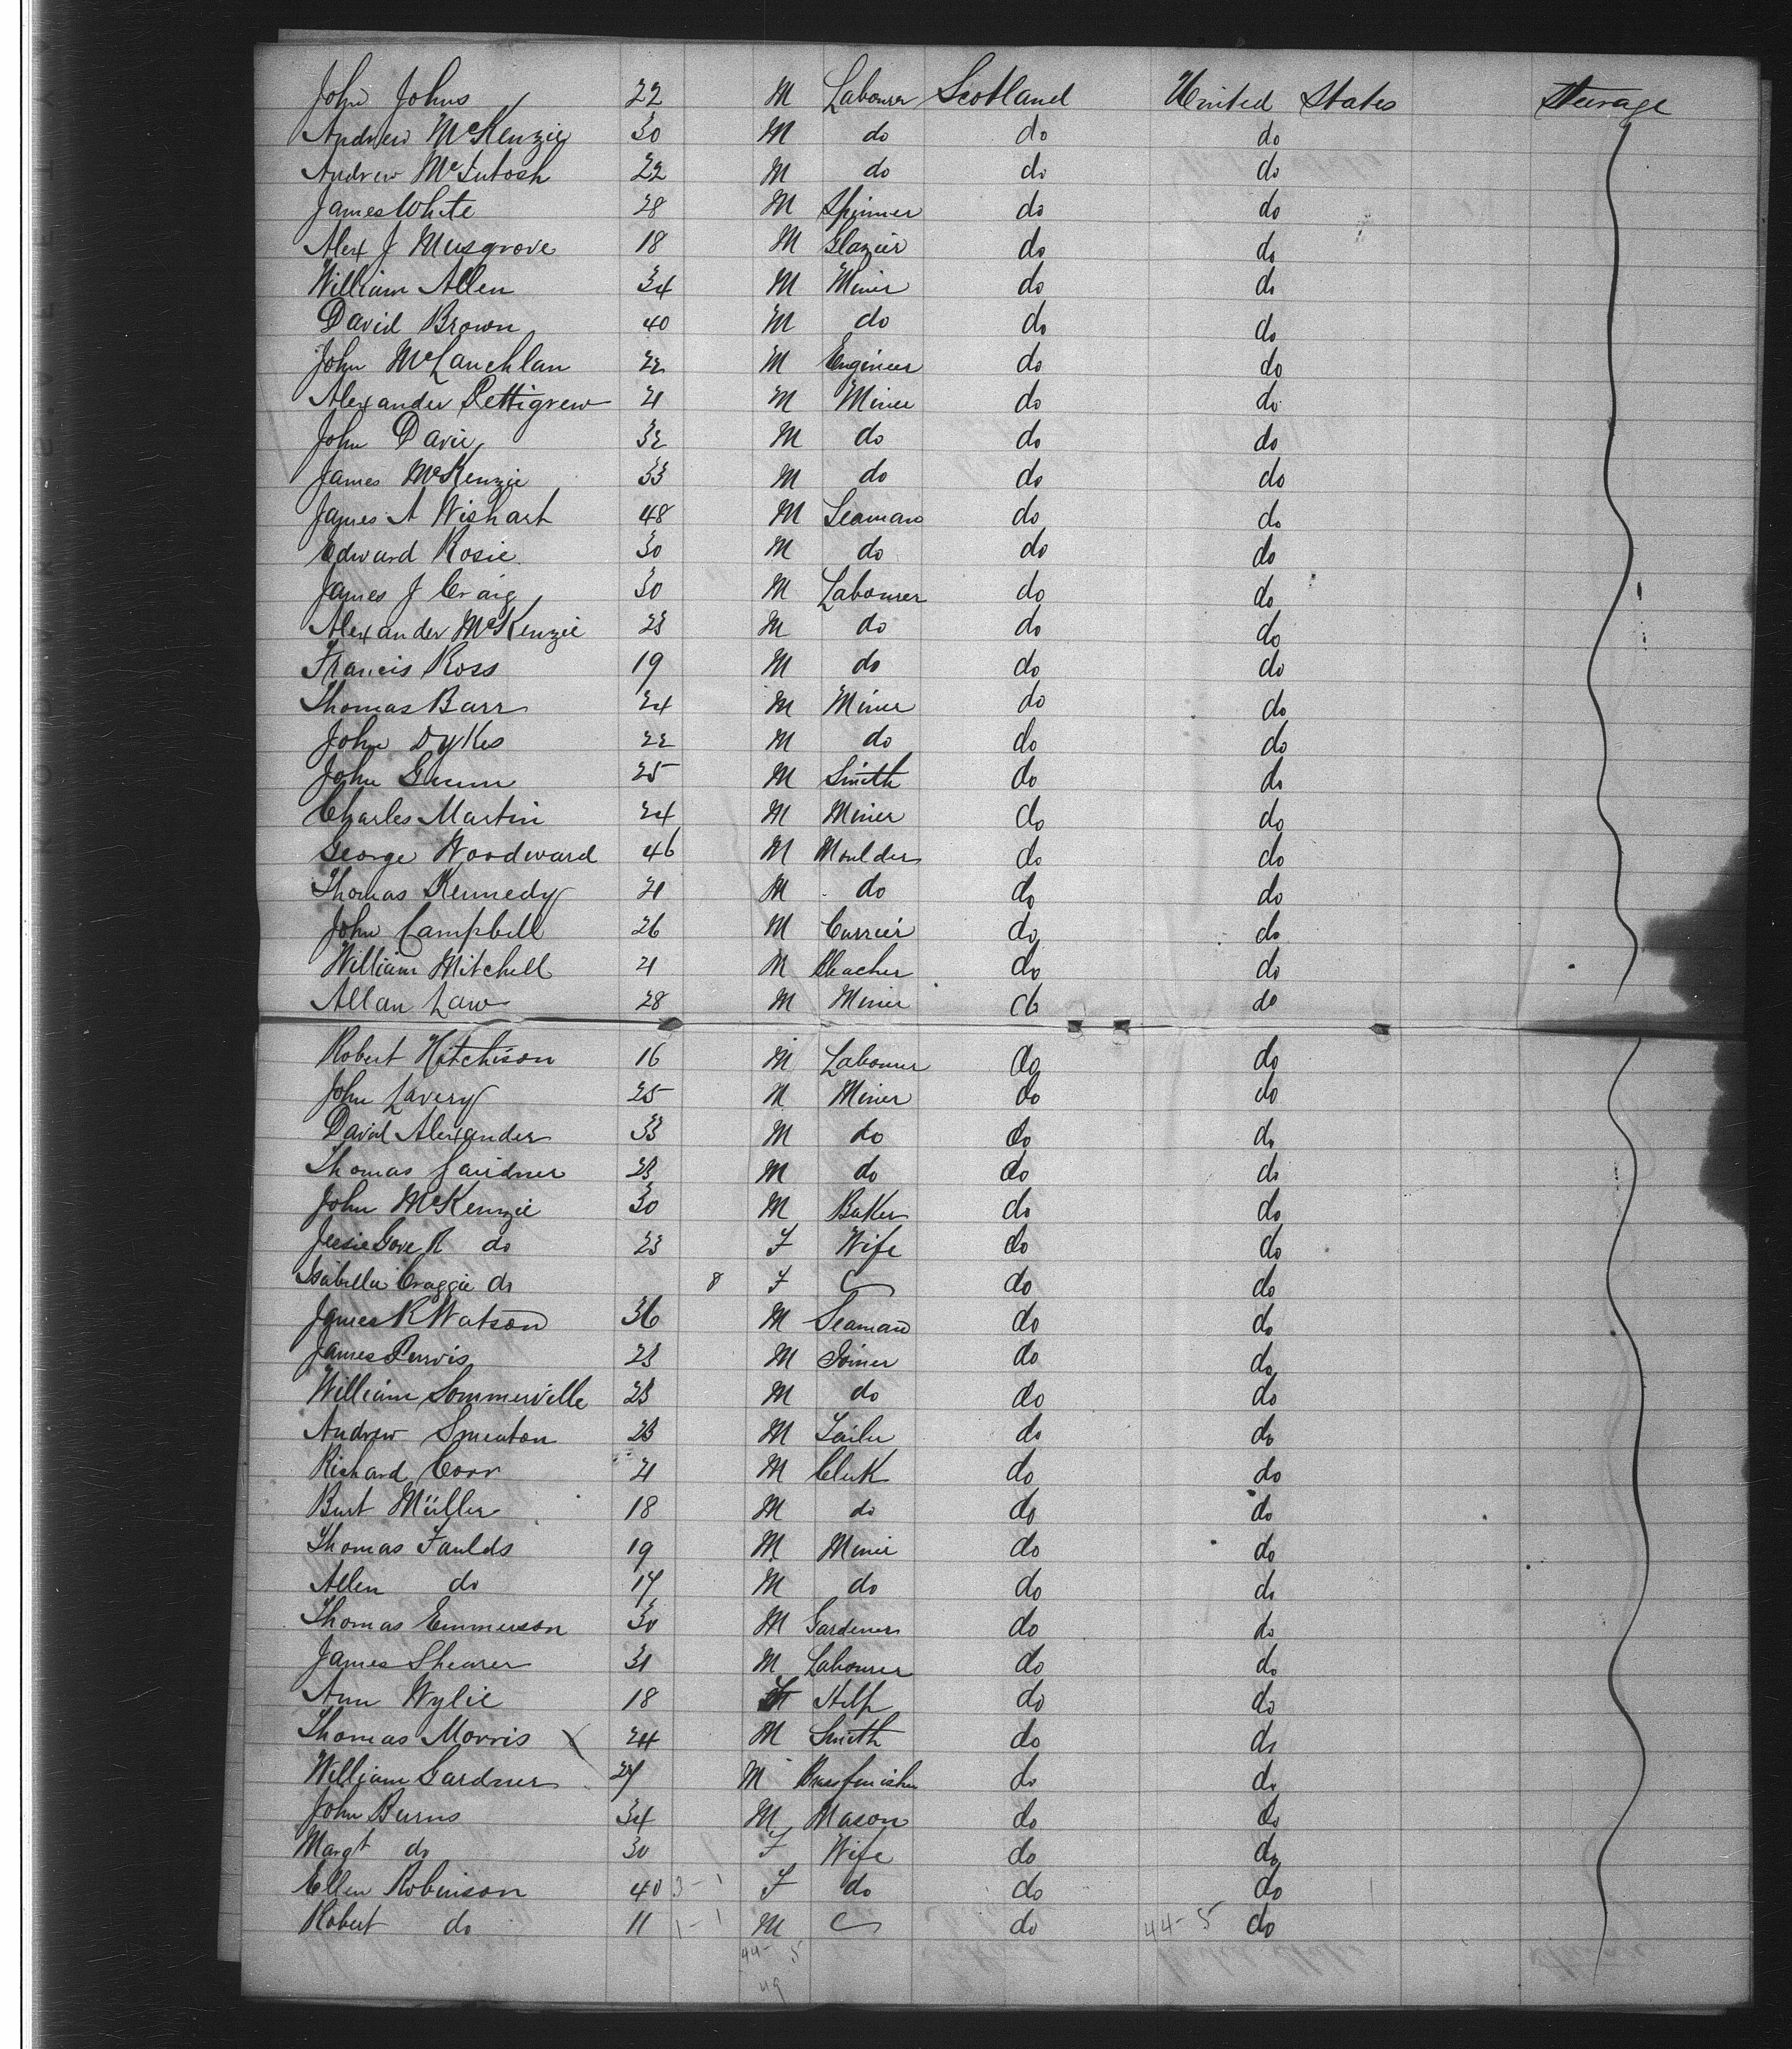 John Johns 22 M Labourer Scotland United States Steerage
Andrew McKenzie 30 M do do do
Andrew McIntosh 22 M do do do
James White 28 M Spinner do do
Alex J Musgrove 18 M Glazier do do
William Allen 34 M Miner do do
David Brown 40 M do do do
John McLauchlan 22 M Engineer do do
Alexander Pettigrew 21 M Miner do do
John Davie 32 M do do do
James McKenzie 33 M do do do
James A Wishart 48 M Seaman do do
Edward Rosie 30 M do do do
James J Craig 30 M Labourer do do
Alexander McKenzie 23 M do do do
Francis Ross 19 M do do do
Thomas Barr 24 M Miner do do
John Dykes 22 M do do do
John Gunn 25 M Smith do do
Charles Martin 24 M Miner do do
George Woodward 46 M Moulder do do
Thomas Kennedy 21 M do do do
John Campbell 26 M Currier do do
William Mitchell 21 M Bleacher do do
Allan Law 28 M Miner do do
Robert Hitchison 16 M Labourer do do
John Lavery 25 M Miner do do
David Alexander 33 M do do do
Thomas Gairdner 23 M do do do
John McKenzie 30 M Baker do do
Jessie Gove R do 23 F Wife do do
Isabella Craggie do 8 F C do do
James R Watson 36 M Seaman do do
James Purvis 23 M Joiner do do
William Sommerville 23 M do do do
Andrew Smeaton 23 M Tailor do do
Richard Corr 21 M Clerk do do
Burt Müller 18 M do do do
Thomas Faulds 19 M Miner do do
Allen do 17 M do do do
Thomas Emmerson 30 M Gardener do do
James Shearer 31 M Labourer do do
Ann Wylie 18 F Help do do
Thomas Morris X 24 M Smith do do
William Gardner 27 M Brassfinisher do do
John Burns 34 M Mason do do
Margt do 30 F Wife do do
Ellen Robinson 40 3-1 F do do do
Robert do 11 1-1 M C do 44-5 do
44-5
49